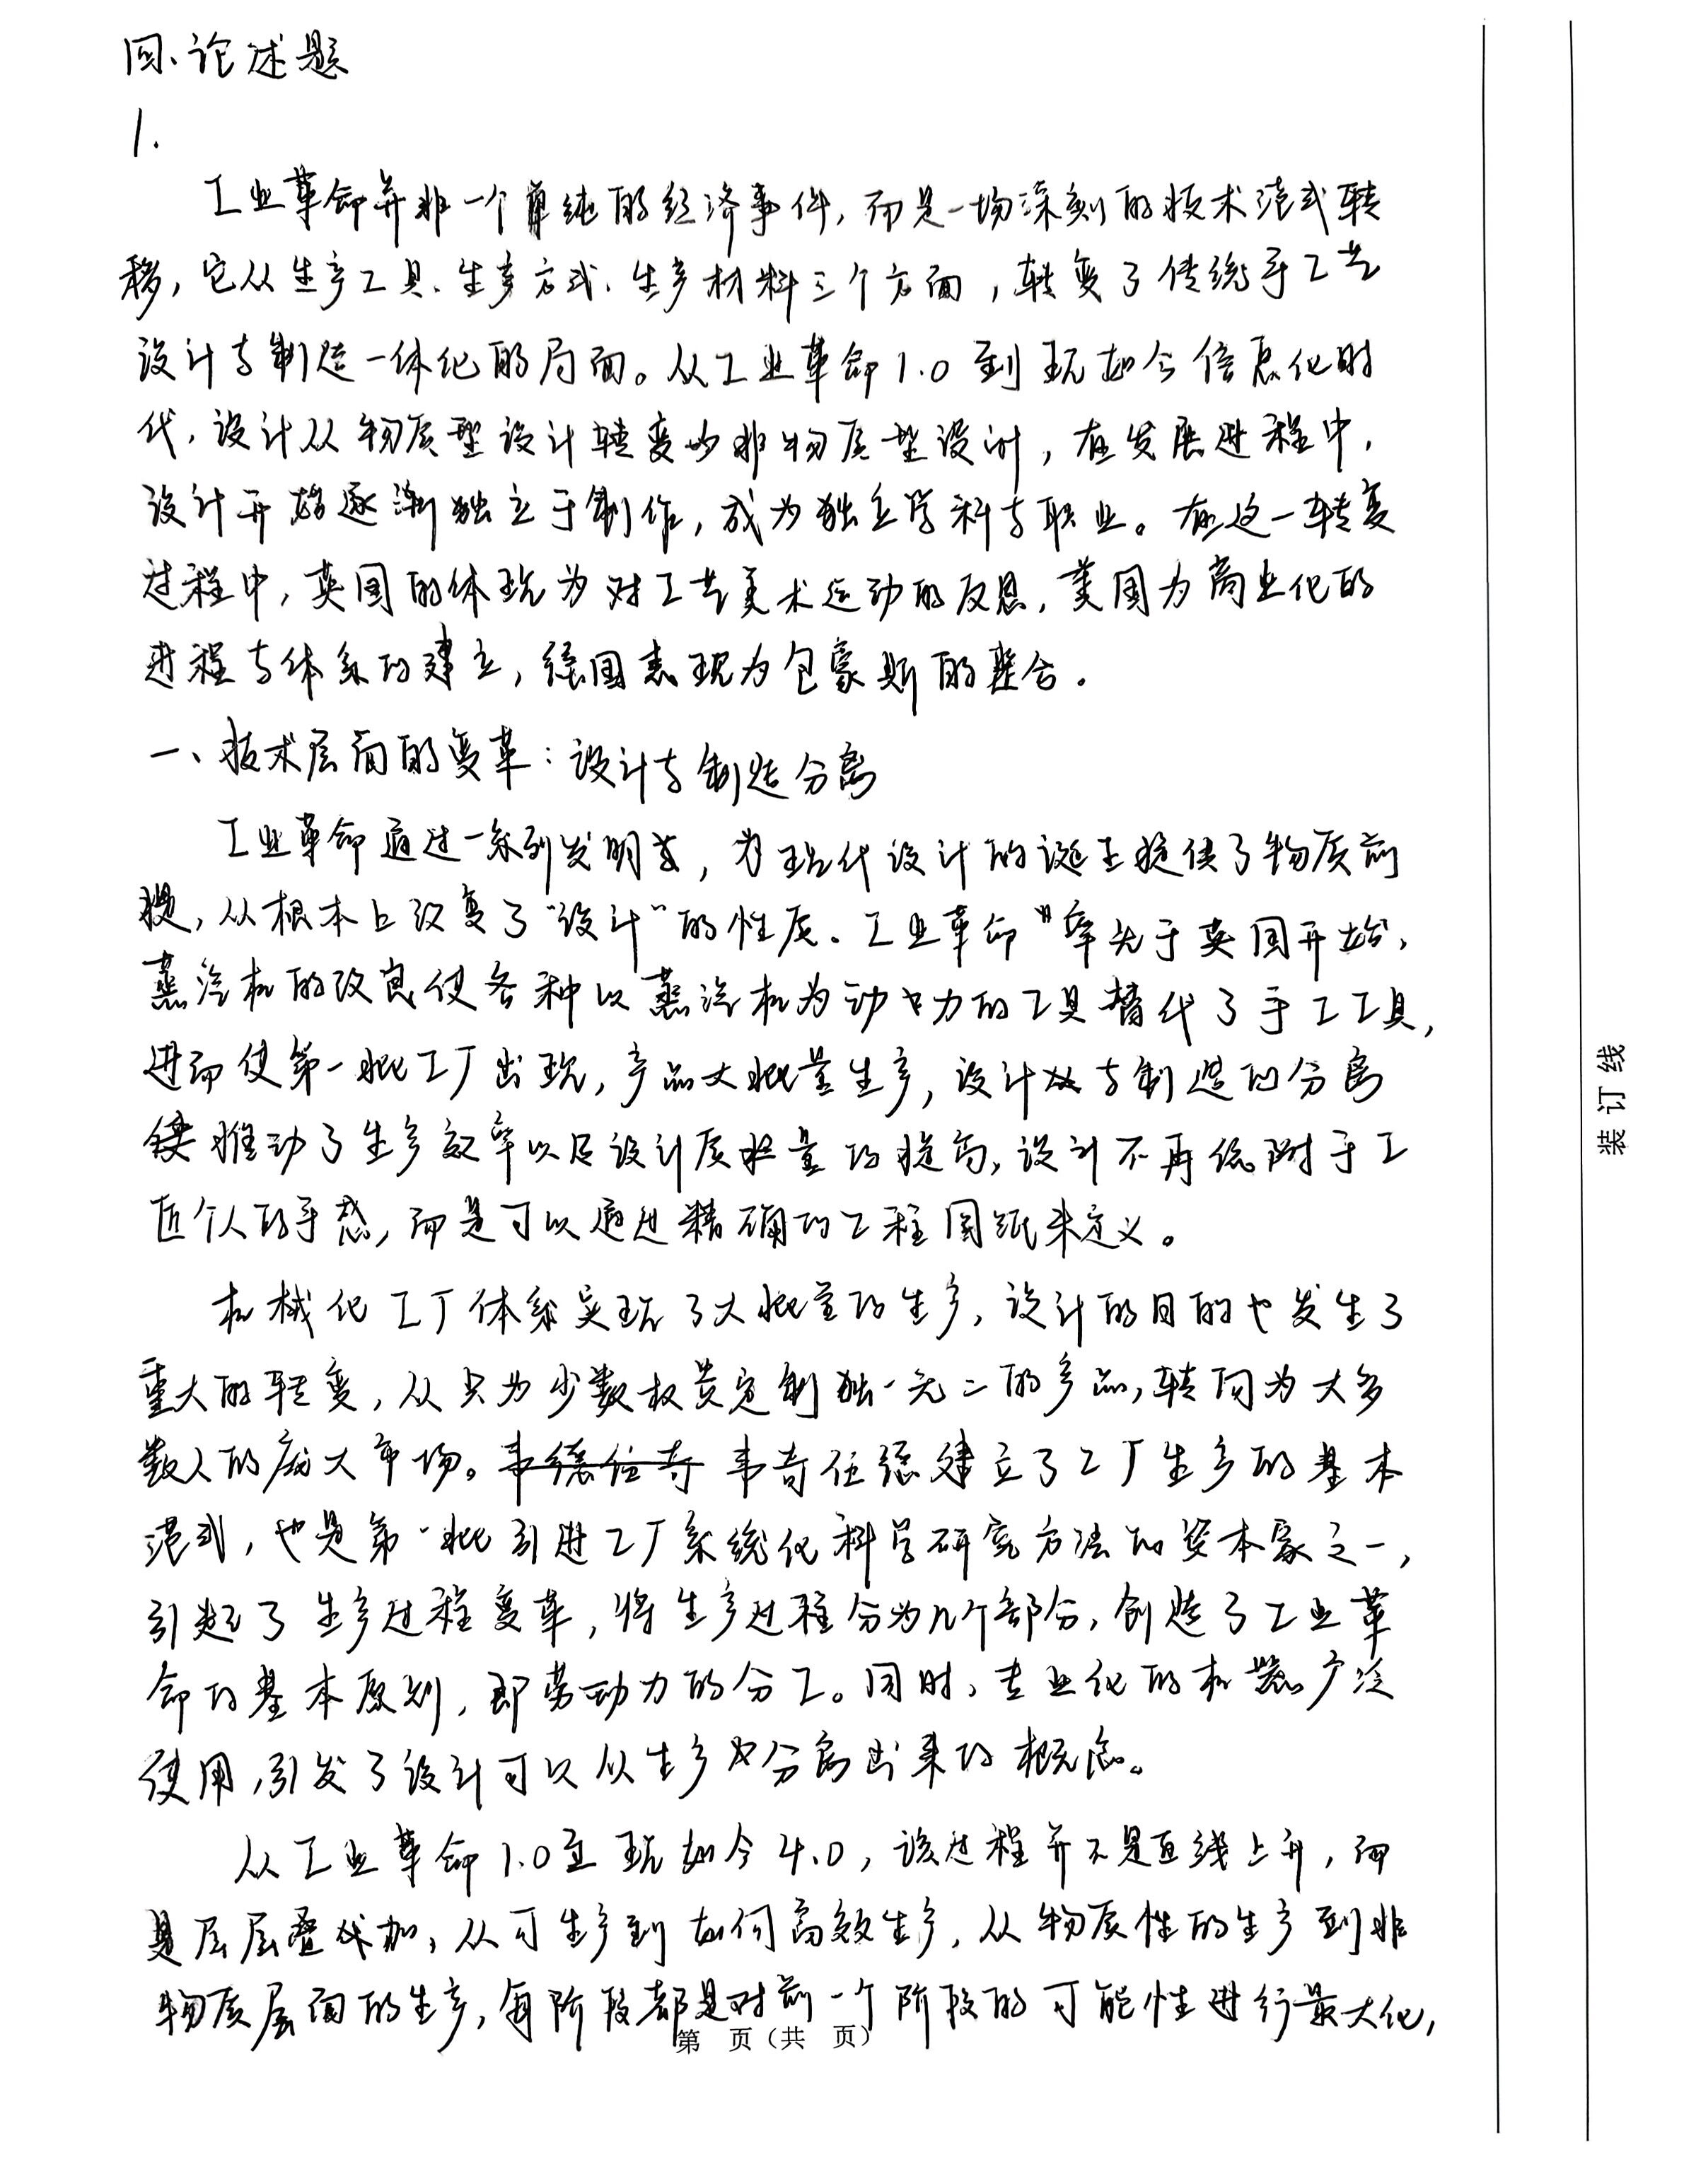 四、论述题
1.
工业革命并非一个单纯的经济事件，而是一场深刻的技术范式转
移，它从生产工具、生产方式、生产材料三个方面，转变了传统手工艺
设计与制造一体化的局面。从工业革命1.0到现如今信息化时
代，设计从物质型设计转变为非物质型设计，在发展进程中，
设计开始逐渐独立于制作，成为独立学科与职业。在这一转变
过程中，英国的体现为对工艺美术运动的反思，美国为商业化的
进程与体系的建立，德国表现为包豪斯的整合。
一、技术层面的变革：设计与制造分离
工业革命通过一系列发明，为现代设计的诞生提供了物质前
提，从根本上改变了“设计”的性质。工业革命“率先于英国开始，
蒸汽机的改良使各种以蒸汽机为动力的工具替代了手工工具，
进而使第一批工厂出现，产品大批量生产，设计与制造的分离
推动了生产效率以及设计质量的提高，设计不再依附于工
匠个人的手感，而是可以通过精确的工程图纸来定义。
机械化工厂体系实现了大批量的生产，设计的目的也发生了
重大的转变，从只为少数权贵定制独一无二的产品，转向为大多
数人的庞大市场。韦奇伍德建立了工厂生产的基本
范式，也是第一批引进工厂系统化科学研究方法的资本家之一，
引起了生产过程变革，将生产过程分为几个部分，创造了工业革
命的基本原则，即劳动力的分工。同时，专业化的机器广泛
使用，引发了设计可以从生产中分离出来的概念。
从工业革命1.0至现如今4.0，该过程并不是直线上升，而
是层层叠加，从可生产到如何高效生产，从物质性的生产到非
物质层面的生产，每阶段都是对前一个阶段的可能性进行最大化，
第 页（共 页）
装订线